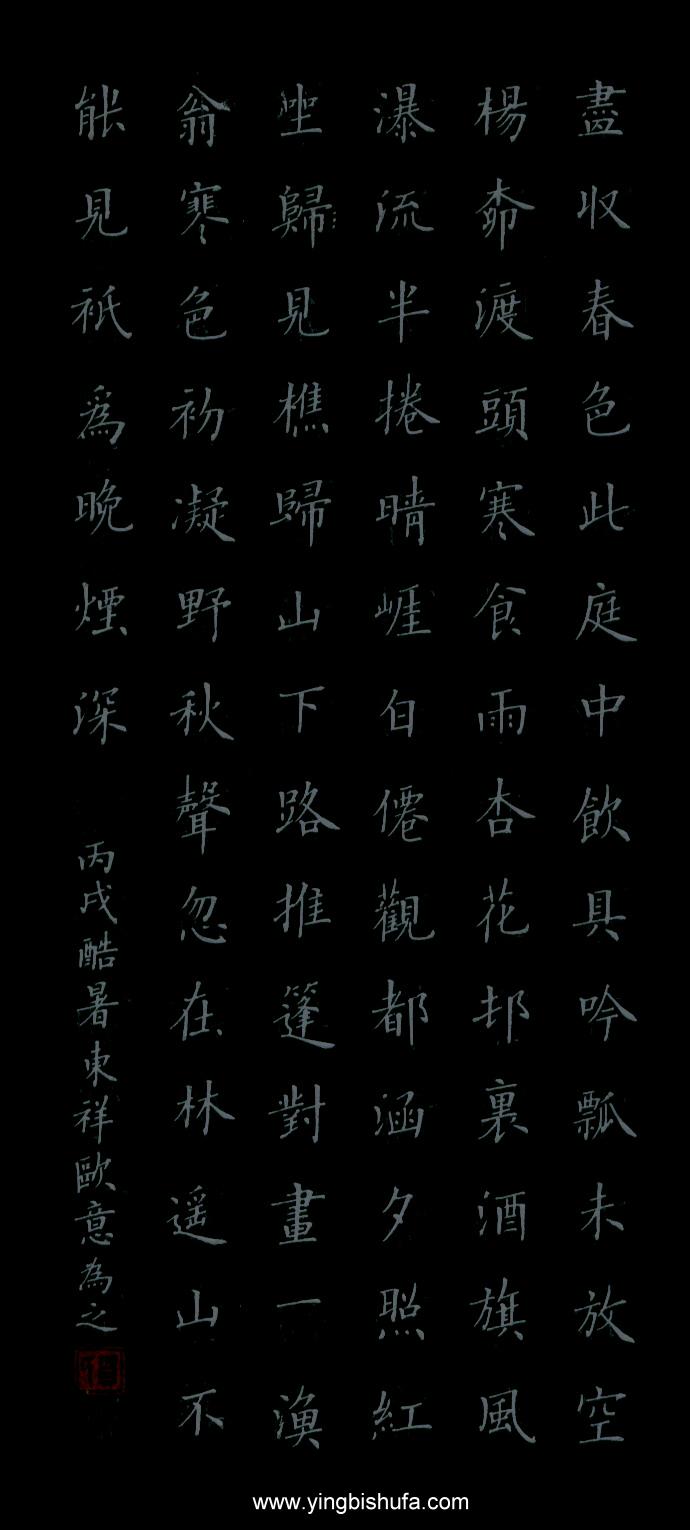 盡收春色此庭中飲具吟瓢未放空
楊柳渡頭寒食雨杏花邨裏酒旗風
瀑流半捲晴崕白僊觀都涵夕照紅
坐歸見樵歸山下路推篷對畫一漁
翁寒色初凝野秋聲忽在林遥山不
能見祇為晚煙深
丙戌酷暑東祥歐意為之
www.yingbishufa.com